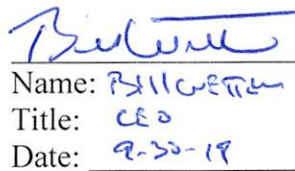 Name: Bill
Title: CEO
Date: 9-30-19